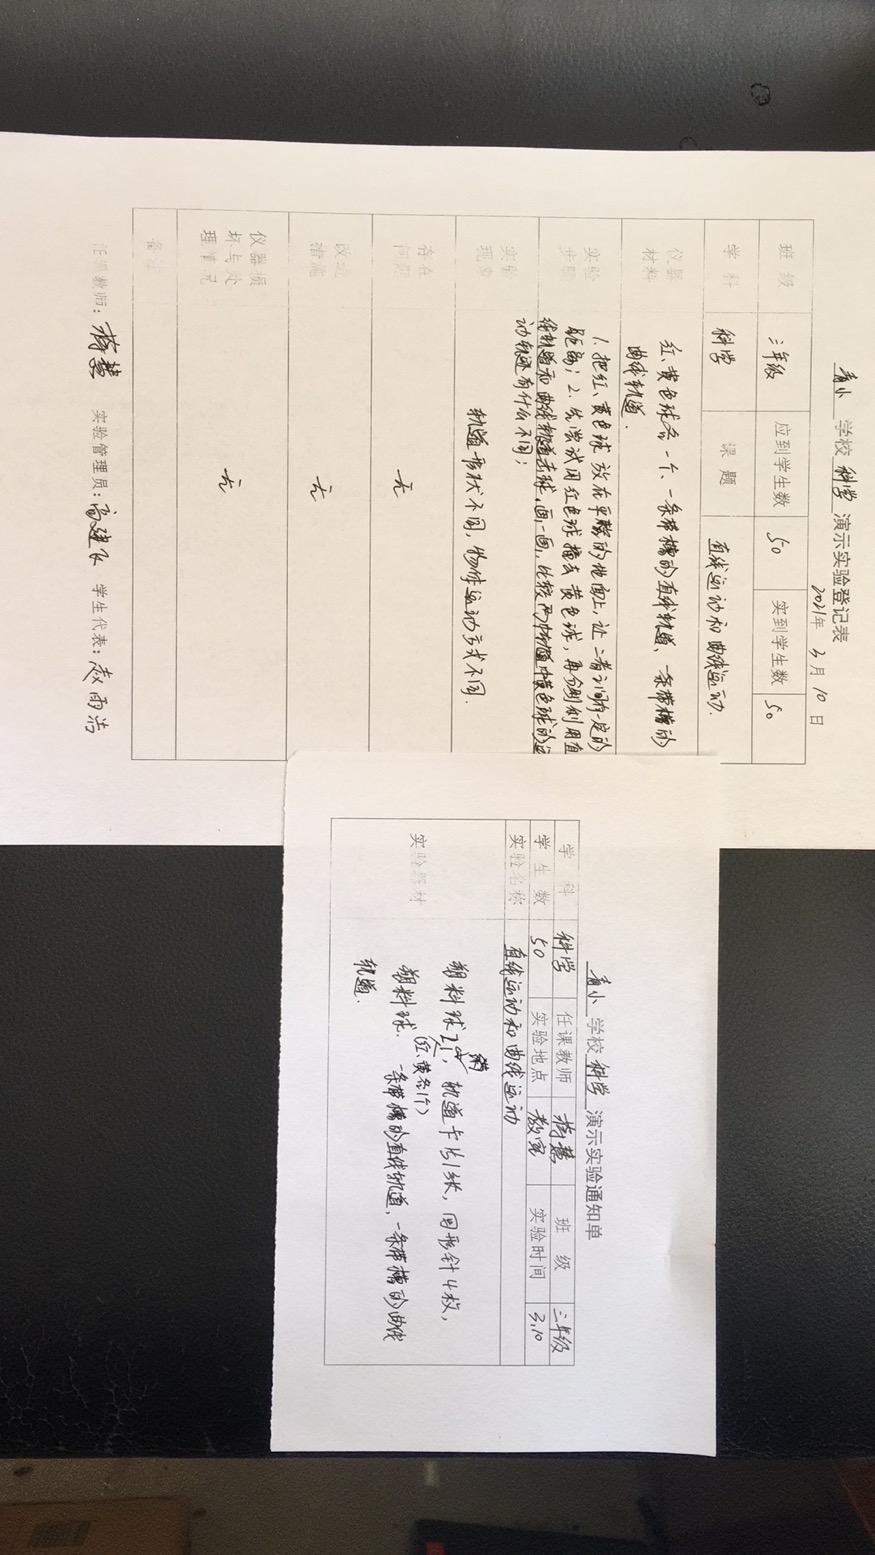 看小 学校 科学 演示实验登记表
2021年 3月 10日
班 级 三年级 应到学生数 50 实到学生数 50
学 科 科学 课 题 直线运动和曲线运动.
仪器材料 红、黄色球各一个、一条带槽的直线轨道、一条带槽的
曲线轨道.
实验步骤 1. 把红、黄色球放在平整的地面上,让二者之间有一定的
距离; 2. 先尝试用红色球撞击黄色球,再分别利用直
线轨道和曲线轨道击球,画一画,比较两中黄色球的运
动轨迹有什么不同;
实验现象 轨道形状不同,物体运动方式不同.
存在问题 无
改进措施 无
仪器损坏与处理情况 无
备注
任课教师: 杨慧 实验管理员: 高建飞 学生代表: 赵雨浩
看小 学校 科学 演示实验通知单
学 科 科学 任课教师 杨慧 班 级 三年级
学 生 数 50 实验地点 教室 实验时间 3.10
实验名称 直线运动和曲线运动
实验器材 塑料球2个, 轨道卡片1张, 回形针4枚,
(红、黄各1个)
塑料球. 一条带槽的直线轨道、一条带槽的曲线
轨道.